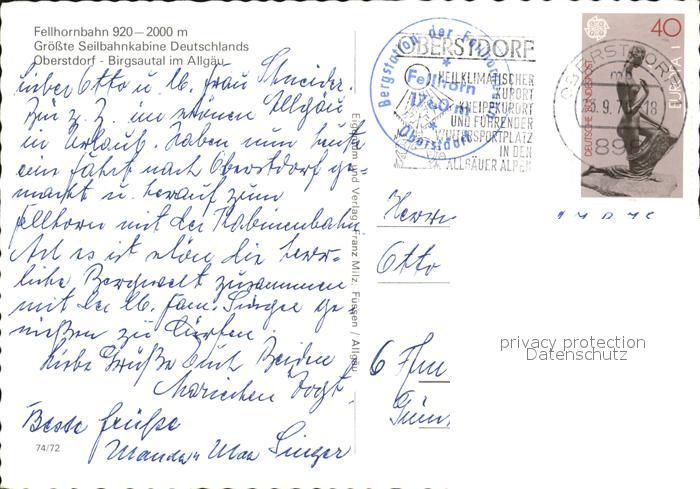 Fellhornbahn 920—2000 m
Größte Seilbahnkabine Deutschlands
Oberstdorf - Birgsautal im Allgäu
Lieber Otto u. lb. Frau Schneider.
Bin z. Z. im schönen Allgäu
in Urlaub. Haben nun heute
eine Fahrt nach Oberstdorf ge-
macht u. herauf zum
Fellhorn mit der Kabinenbahn
Ach es ist schön die herr-
liche Bergwelt zusammen
mit der lb. Fam. Singer ge-
nießen zu dürfen.
Liebe Grüße Euch Beiden
Mariechen Vogt.
Beste Grüße
Max Singer
74/72
Eigentum und Verlag Franz Milz, Füssen / Allgäu
Bergstation der Fellhornbahn
Fellhorn
1780 m
Oberstdorf
OBERSTDORF
HEILKLIMATISCHER
KURORT
KNEIPPKURORT
UND FÜHRENDER
WINTERSPORTPLATZ
IN DEN
ALLGÄUER ALPEN
OBERSTDORF
18
898
40
EUROPA
DEUTSCHE BUNDESPOST
Herrn
Otto
6 Ffm
privacy protection
Datenschutz